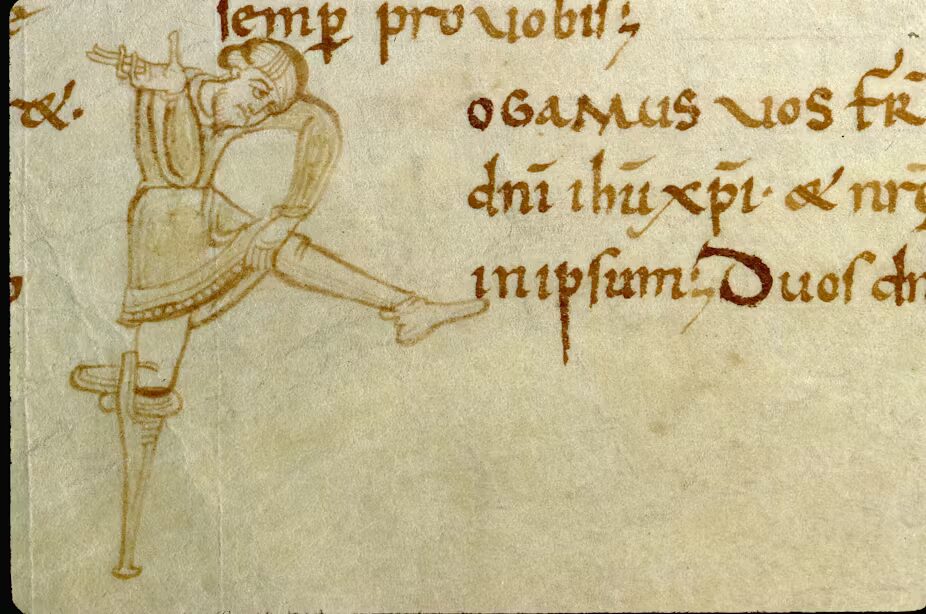 semꝑ pro vobis;
&.
OGAMUS VOS FR̄
dn̄i ihū xp̄i· & nr̄
in ipsum; Duos dn